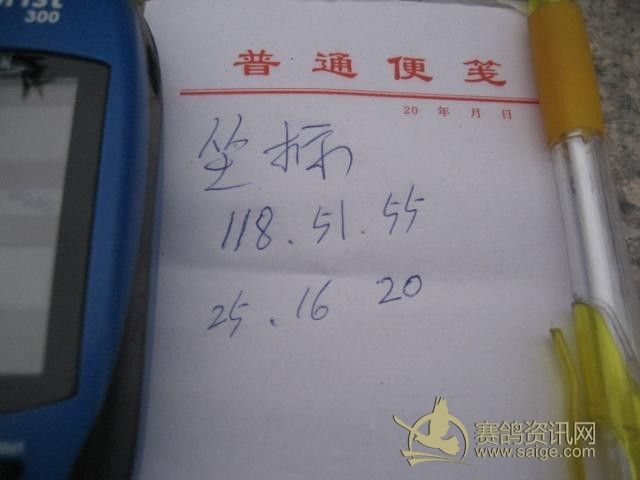 300
普通便笺
20 年 月 日
坐标
118.51.55
25.16 20
赛鸽资讯网
www.saige.com